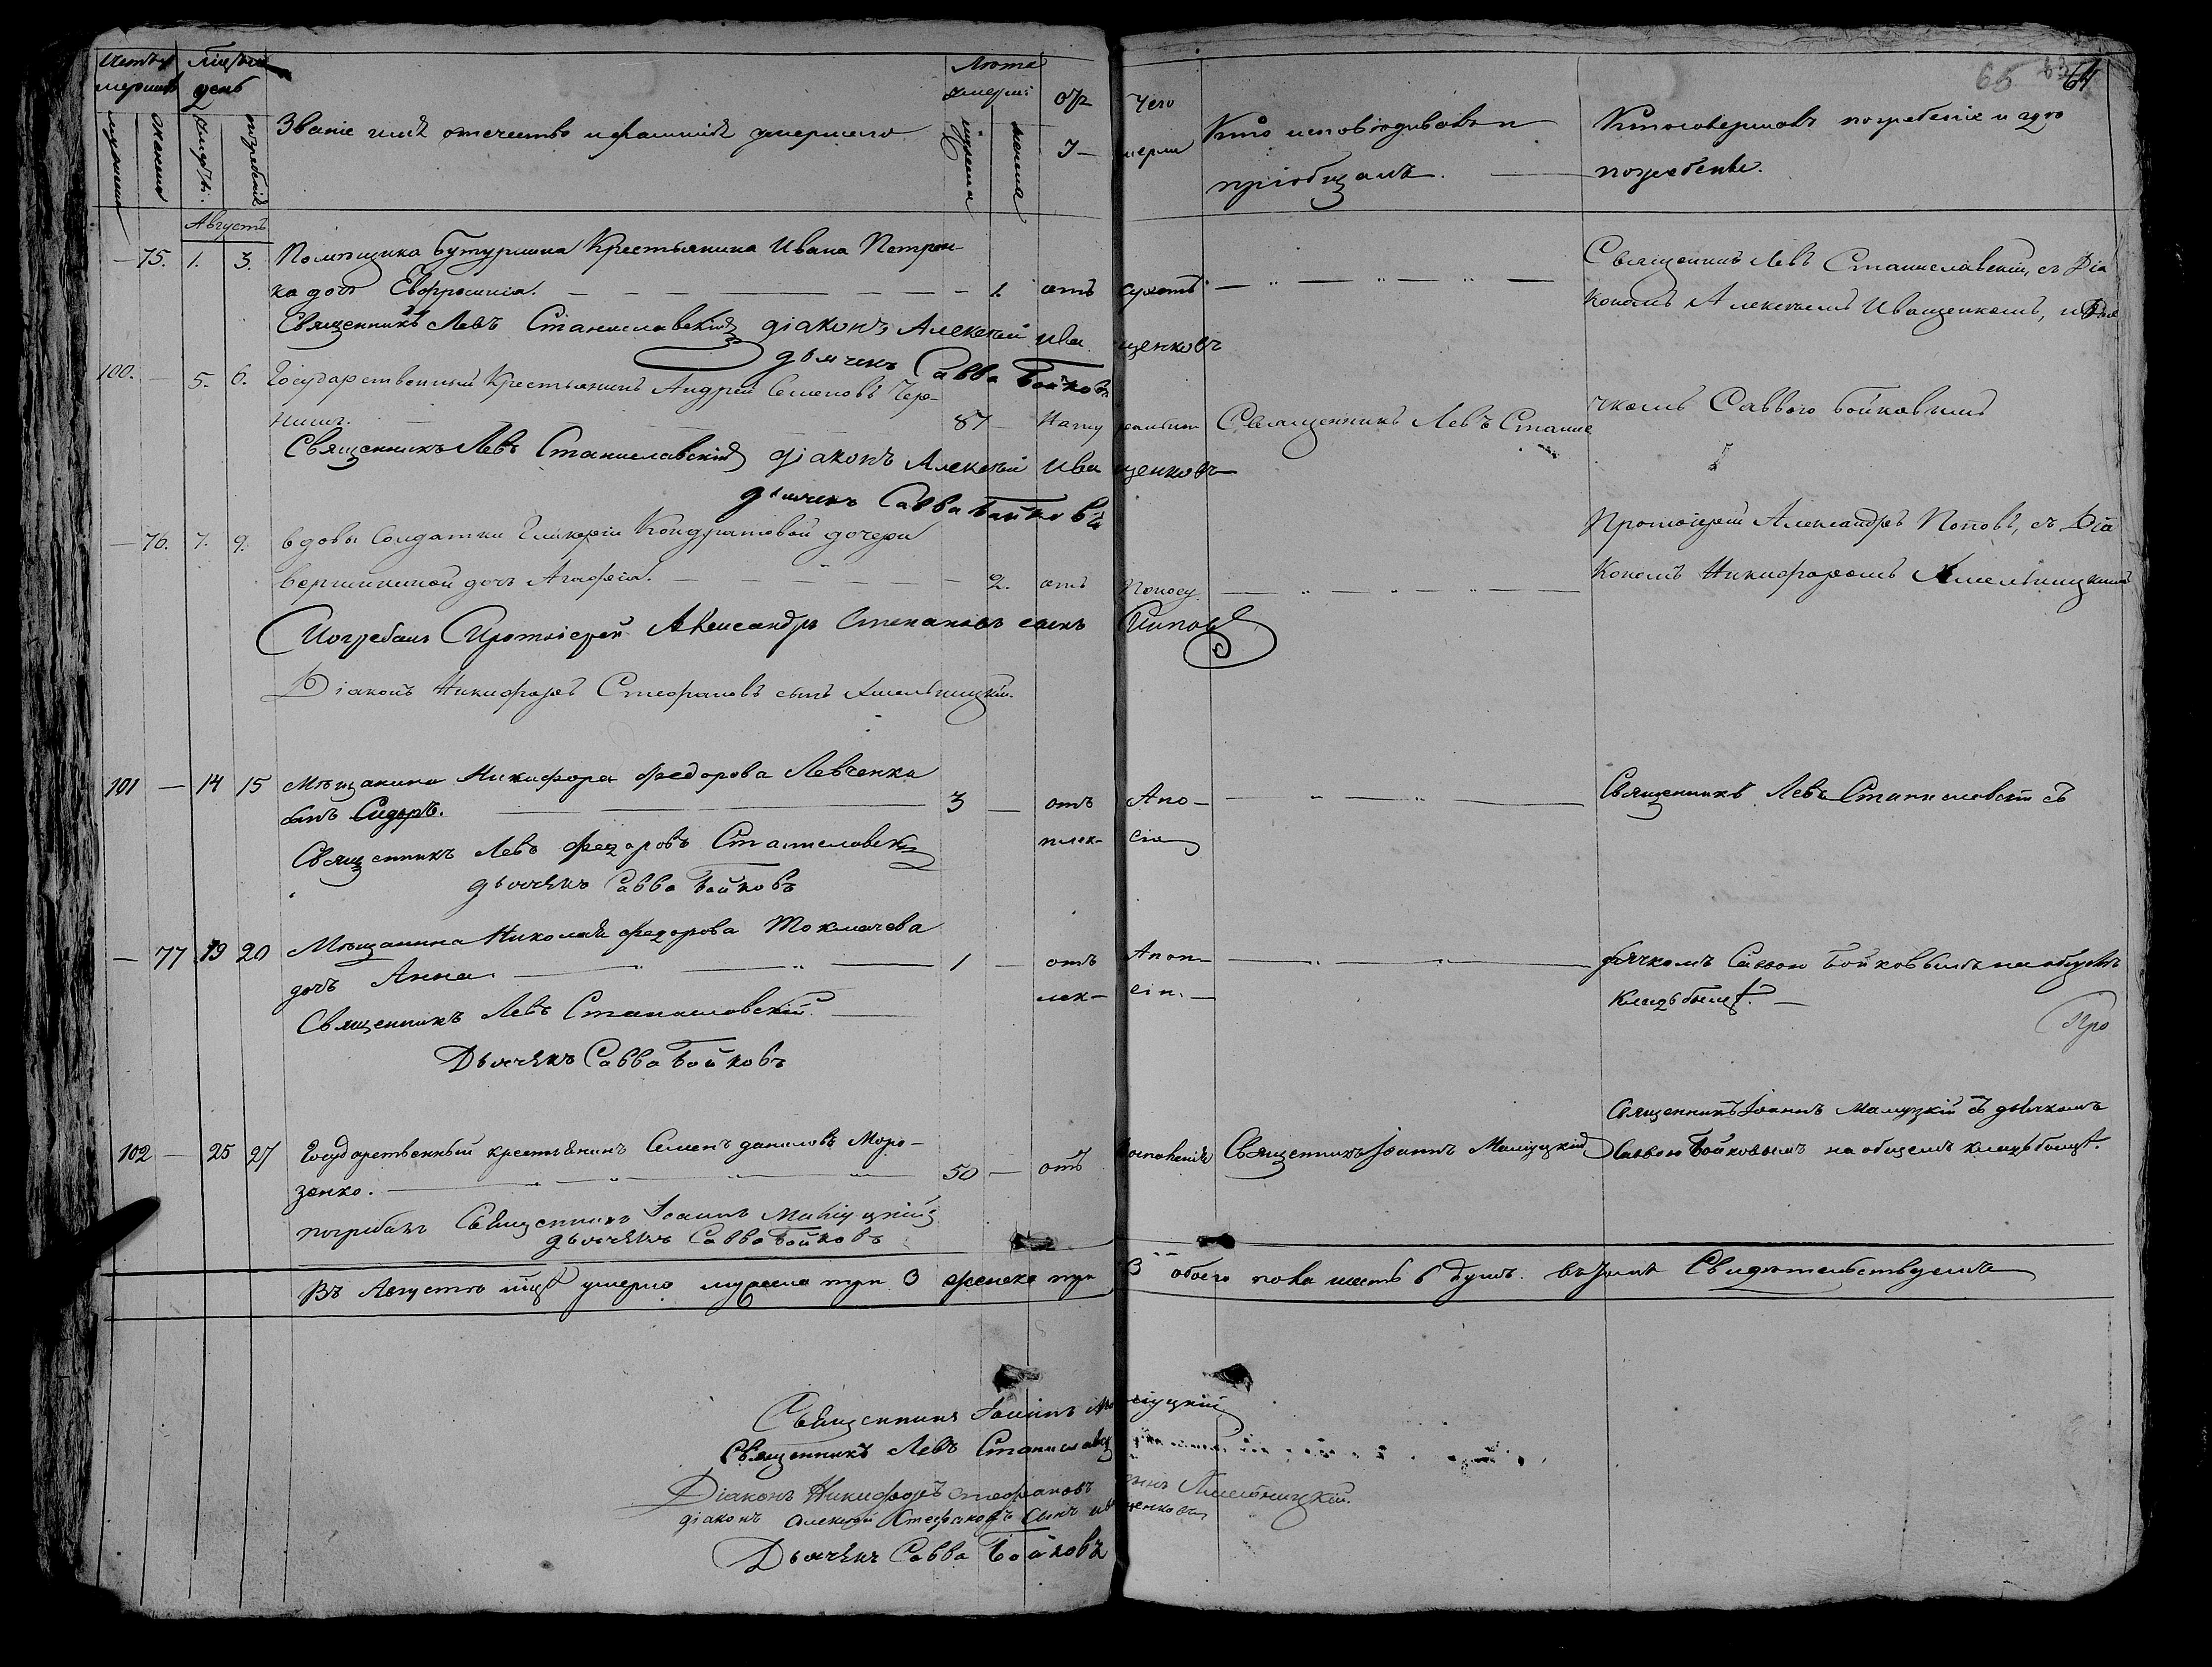 Счетъ умершихъ
Мѣсяцъ и день
Званіе имя отечество и фамилія умершаго
Лета умерш:
Отъ Чего
умерли
Кто исповѣдивалъ и
пріобщалъ.
Кто совершалъ погребеніе и гдѣ
погребены.
64
65
мужеска
женска
погребенія
мужеска
женска
Августъ
— 75. 1. 3. Помѣщика Бутурлина Крестьянина Ивана Петрен-
ка дочь Евфросинія. — 1. отъ сухотъ
Священникъ Левъ Станиславскій, съ Діа
кономъ Алексѣемъ Иващенкомъ, и Дья
Священникъ Левъ Станиславскій діаконъ Алексѣй Иващенковъ
дьячекъ Савва Бойковъ
100. — 5. 6. Государственный Крестьянинъ Андрей Семеновъ Чере-
87 — Нату Священникъ Левъ Станис
чкомъ Саввою Бойковымъ
Священникъ Левъ Станиславскій діаконъ Алексѣй Иващенковъ
дьячекъ Савва Бойковъ
— 76. 7. 9. вдовы Солдатки Гликеріи Кондратовой дочери
дочь Агафія. — 2. отъ Поносу.
Протоіерей Александръ Поповъ, съ Діа
кономъ Никифоромъ Хмельницкимъ
Погребалъ Протоіерей Александръ Степановъ сынъ Поповъ
Діаконъ Никифоръ Стефановъ сынъ Хмельницкій.
101 — 14 15 Мѣщанина Никифора Федорова Левченка
сынъ Сидоръ. 3 — отъ Апо-
плек- сіи
Священникъ Левъ Станиславскій съ
Священникъ Левъ Федоровъ Станиславскій
дьячекъ Савва Бойковъ
— 77 19 20 Мѣщанина Николая Федорова Токмачева
дочь Анна 1 — отъ Апоп-
лек- сіи. —
дьячкомъ Саввою Бойковымъ на общемъ
кладбищѣ. —
Про
Священникъ Левъ Станиславскій.
Дьячекъ Савва Бойковъ
Священникъ Іоаннъ Малуцкій съ дьячкомъ
102 — 25 27 Государственный крестьянинъ Семенъ Даниловъ Моро-
зенко. 50 — отъ Священникъ Іоаннъ Малуцкій
Саввою Бойковымъ на общемъ кладбищѣ.
погребалъ Священникъ Іоаннъ Малуцкій
дьячекъ Савва Бойковъ
Въ Августѣ мцѣ умерло мужеска три 3 женска три 3 обоего пола шесть 6 душъ. въ чемъ Свидѣтельствуемъ
Священникъ Іоаннъ Малуцкій
Священникъ Левъ Станиславскій
Діаконъ Никифоръ Стефановъ сынъ Хмельницкій.
діаконъ Алексѣй Стефановъ сынъ Иващенковъ
Дьячекъ Савва Бойковъ